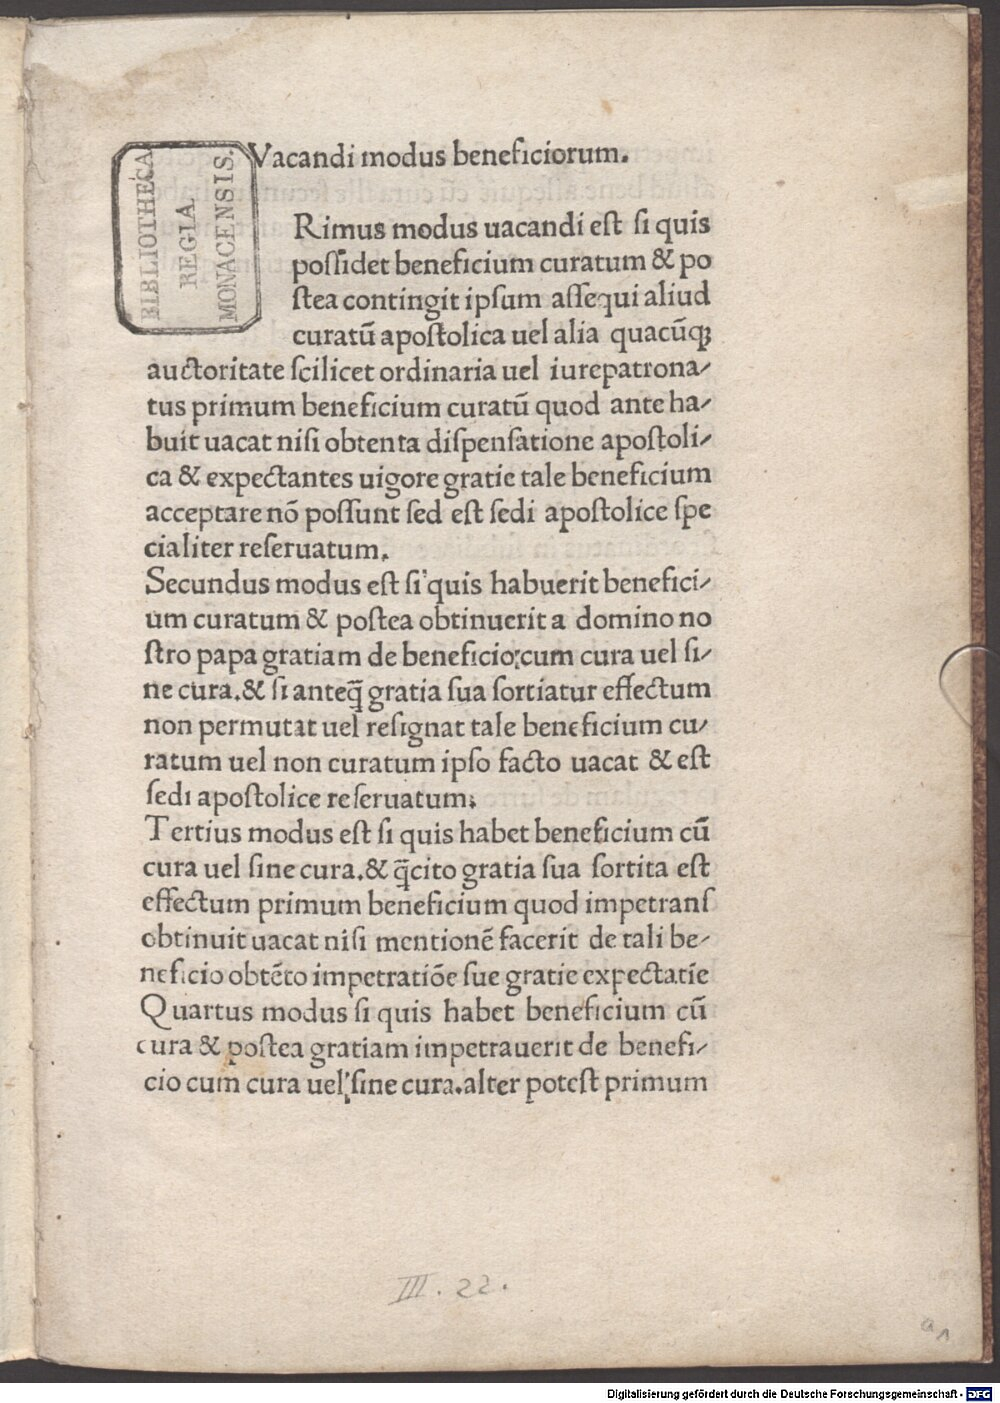 BIBLIOTHECA
REGIA
MONACENSIS.
Vacandi modus beneficiorum.
Rimus modus uacandi est si quis
possidet beneficium curatum & po
stea contingit ipsum assequi aliud
curatū apostolica uel alia quacūqꝫ
auctoritate scilicet ordinaria uel iurepatrona⸗
tus primum beneficium curatū quod ante ha⸗
buit uacat nisi obtenta dispensatione apostoli⸗
ca & expectantes uigore gratie tale beneficium
acceptare nō possunt sed est sedi apostolice spe
cialiter reseruatum.
Secundus modus est si quis habuerit benefici⸗
um curatum & postea obtinuerit a domino no
stro papa gratiam de beneficio:cum cura uel si⸗
ne cura.& si anteq̄ gratia sua sortiatur effectum
non permutat uel resignat tale beneficium cu⸗
ratum uel non curatum ipso facto uacat & est
sedi apostolice reseruatum;
Tertius modus est si quis habet beneficium cū
cura uel sine cura.& q̄cito gratia sua sortita est
effectum primum beneficium quod impetrans
obtinuit uacat nisi mentionē facerit de tali be⸗
neficio obtēto impetratiōe sue gratie expectatīe
Quartus modus si quis habet beneficium cū
cura & postea gratiam impetrauerit de benefi⸗
cio cum cura uel sine cura.alter potest primum
III. 22.
a1
Digitalisierung gefördert durch die Deutsche Forschungsgemeinschaft - DFG